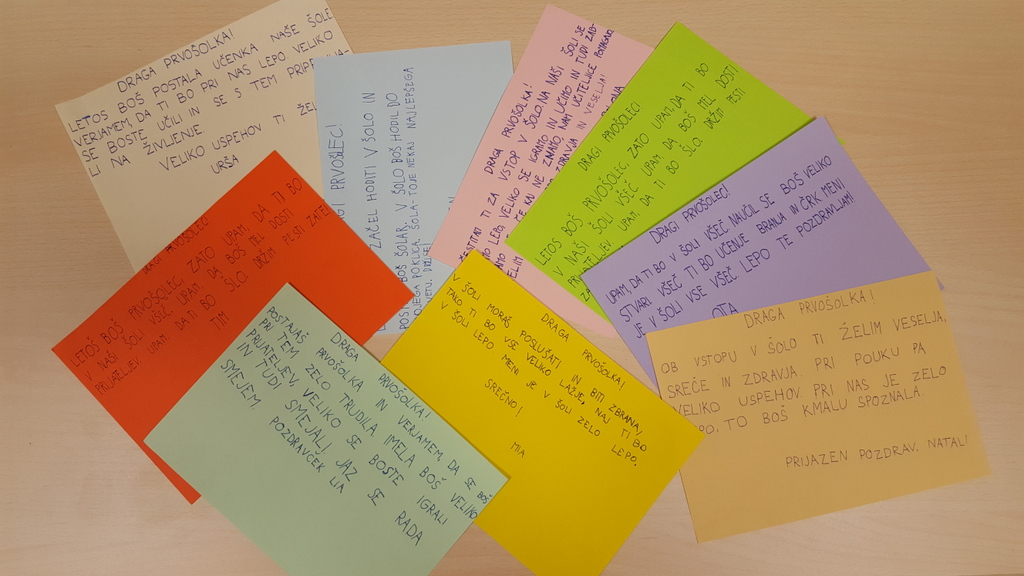 DRAGA PRVOŠOLKA!
LETOS BOŠ POSTALA UČENKA NAŠE ŠOLE
VERJAMEM, DA TI BO PRI NAS LEPO VELIKO
SE BOSTE UČILI IN SE S TEM
LI NA ŽIVLJENJE
VELIKO USPEHOV TI
URŠA
PRVOŠLEC!
ZAČEL HODITI V ŠOLO IN
BOŠ ŠOLAR. V ŠOLO BOŠ HODIL DO
POKLICA. ŠOLA-TO JE NEKAJ NAJLEPŠEGA
DRAGA PRVOŠOLKA!
TI ZA VSTOP V ŠOLO. NA NAŠI ŠOLI SE
LEPO, VELIKO SE IGRAMO IN UČIMO IN TUDI
KAJ NE ZNAMO, NAM UČITELJICE
ZDRAVJA IN VESELJA!
DRAGI PRVOŠOLEC!
LETOS BOŠ PRVOŠOLEC, ZATO UPAM, DA TI BO
V NAŠI ŠOLI VŠEČ. UPAM DA BOŠ IMEL DOSTI
PRIJATELJEV. UPAM, DA TI BO ŠLO.
DRŽIM PESTI
DRAGI PRVOŠOLEC!
UPAM DA TI BO V ŠOLI VŠEČ NAUČIL SE BOŠ VELIKO
STVARI VŠEČ TI BO UČENJE BRANJA IN ČRK MENI
JE V ŠOLI VSE VŠEČ LEPO TE POZDRAVLJAM!
OTA
DRAGI PRVOŠOLEC!
LETOŠ BOŠ PRVOŠOLEC, ZATO UPAM, DA TI BO
V NAŠI ŠOLI VŠEČ. UPAM DA BOŠ MEL DOSTI
PRIJATELJEV. UPAM, DA TI BO ŠLO. DRŽIM PESTI ZATE!
TIM
DRAGA PRVOŠOLKA!
POSTAJAŠ PRVOŠOLKA IN VERJAMEM, DA SE BOŠ
PRI TEM ZELO TRUDILA. IMELA BOŠ VELIKO
PRIJATELJEV, VELIKO SE BOSTE IGRALI
IN TUDI SMEJALI. JAZ SE RADA
SMEJEM.
POZDRAVČEK LIA
DRAGA PRVOŠOLKA!
V ŠOLI MORAŠ POSLUŠATI IN BITI ZBRANA,
TAKO TI BO VSE VELIKO LAŽJE, NAJ TI BO
V ŠOLI LEPO MENI JE V ŠOLI ZELO LEPO.
SREČNO!
DRAGA PRVOŠOLKA!
OB VSTOPU V ŠOLO TI ŽELIM VESELJA,
SREČE IN ZDRAVJA. PRI POUKU PA
VELIKO USPEHOV. PRI NAS JE ZELO
LEPO. TO BOŠ KMALU SPOZNALA.
PRIJAZEN POZDRAV. NATALI